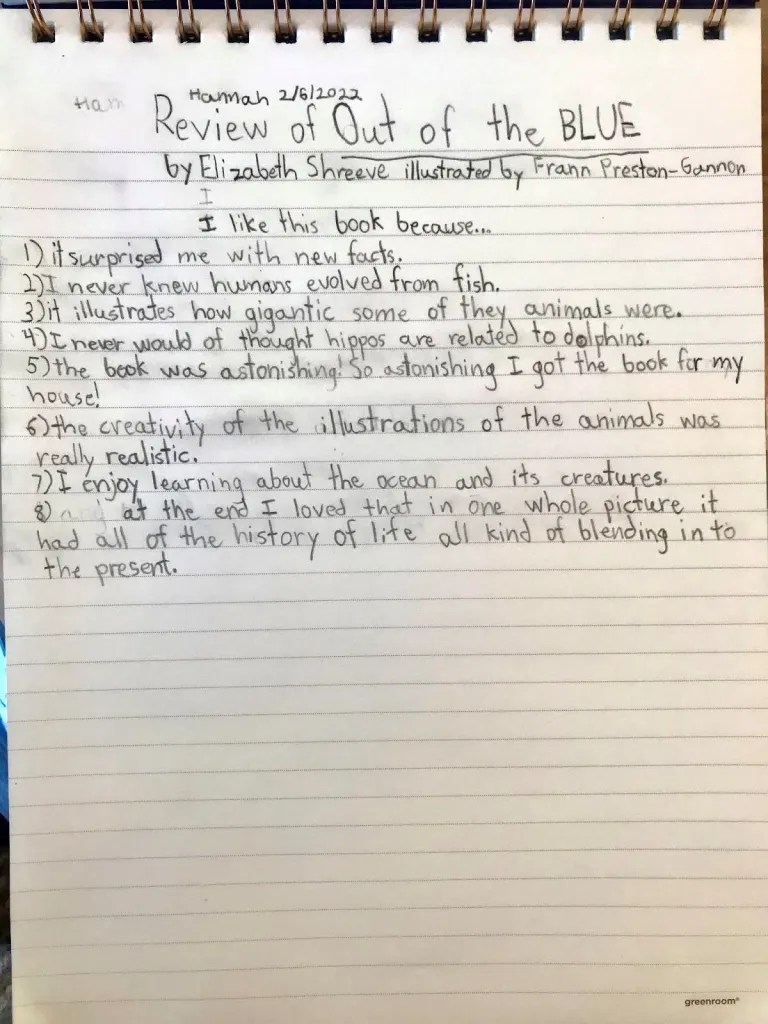 Ham
Hannah 2/6/2022
Review of Out of the BLUE
by Elizabeth Shreeve illustrated by Frann Preston-Gannon
I
I like this book because...
1) it surprised me with new facts.
2) I never knew humans evolved from fish.
3) it illustrates how gigantic some of they animals were.
4) I never would of thought hippos are related to dolphins.
5) the book was astonishing! So astonishing I got the book for my
house!
6) the creativity of the illustrations of the animals was
really realistic.
7) I enjoy learning about the ocean and its creatures.
8) at the end I loved that in one whole picture it
had all of the history of life all kind of blending in to
the present.
greenroom®